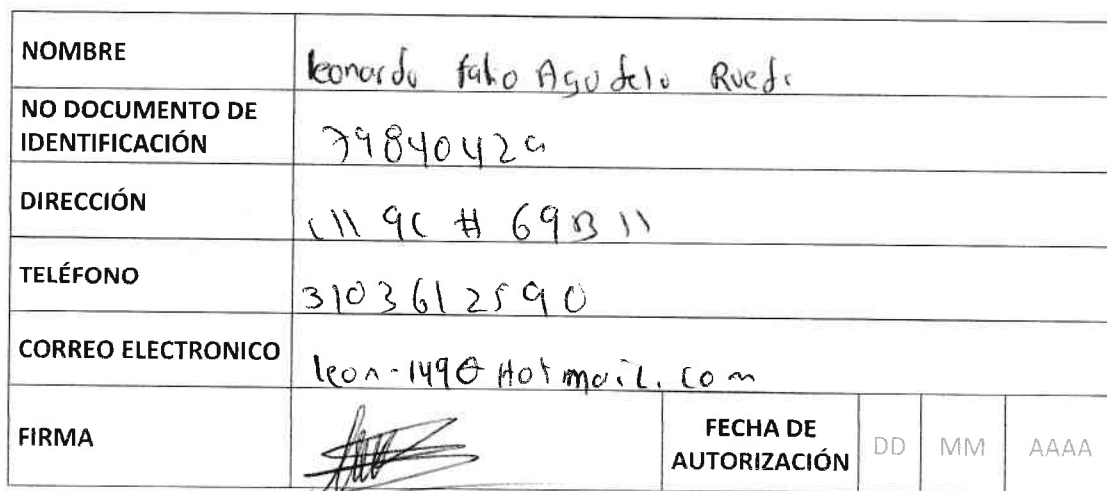 NOMBRE
leonardo fabio Agudelo Rueda
NO DOCUMENTO DE
IDENTIFICACIÓN
79840429
DIRECCIÓN
Cll 9C # 69B 11
TELÉFONO
3103612590
CORREO ELECTRONICO
leon-149@Hotmail.com
FIRMA
FECHA DE
AUTORIZACIÓN
DD MM AAAA